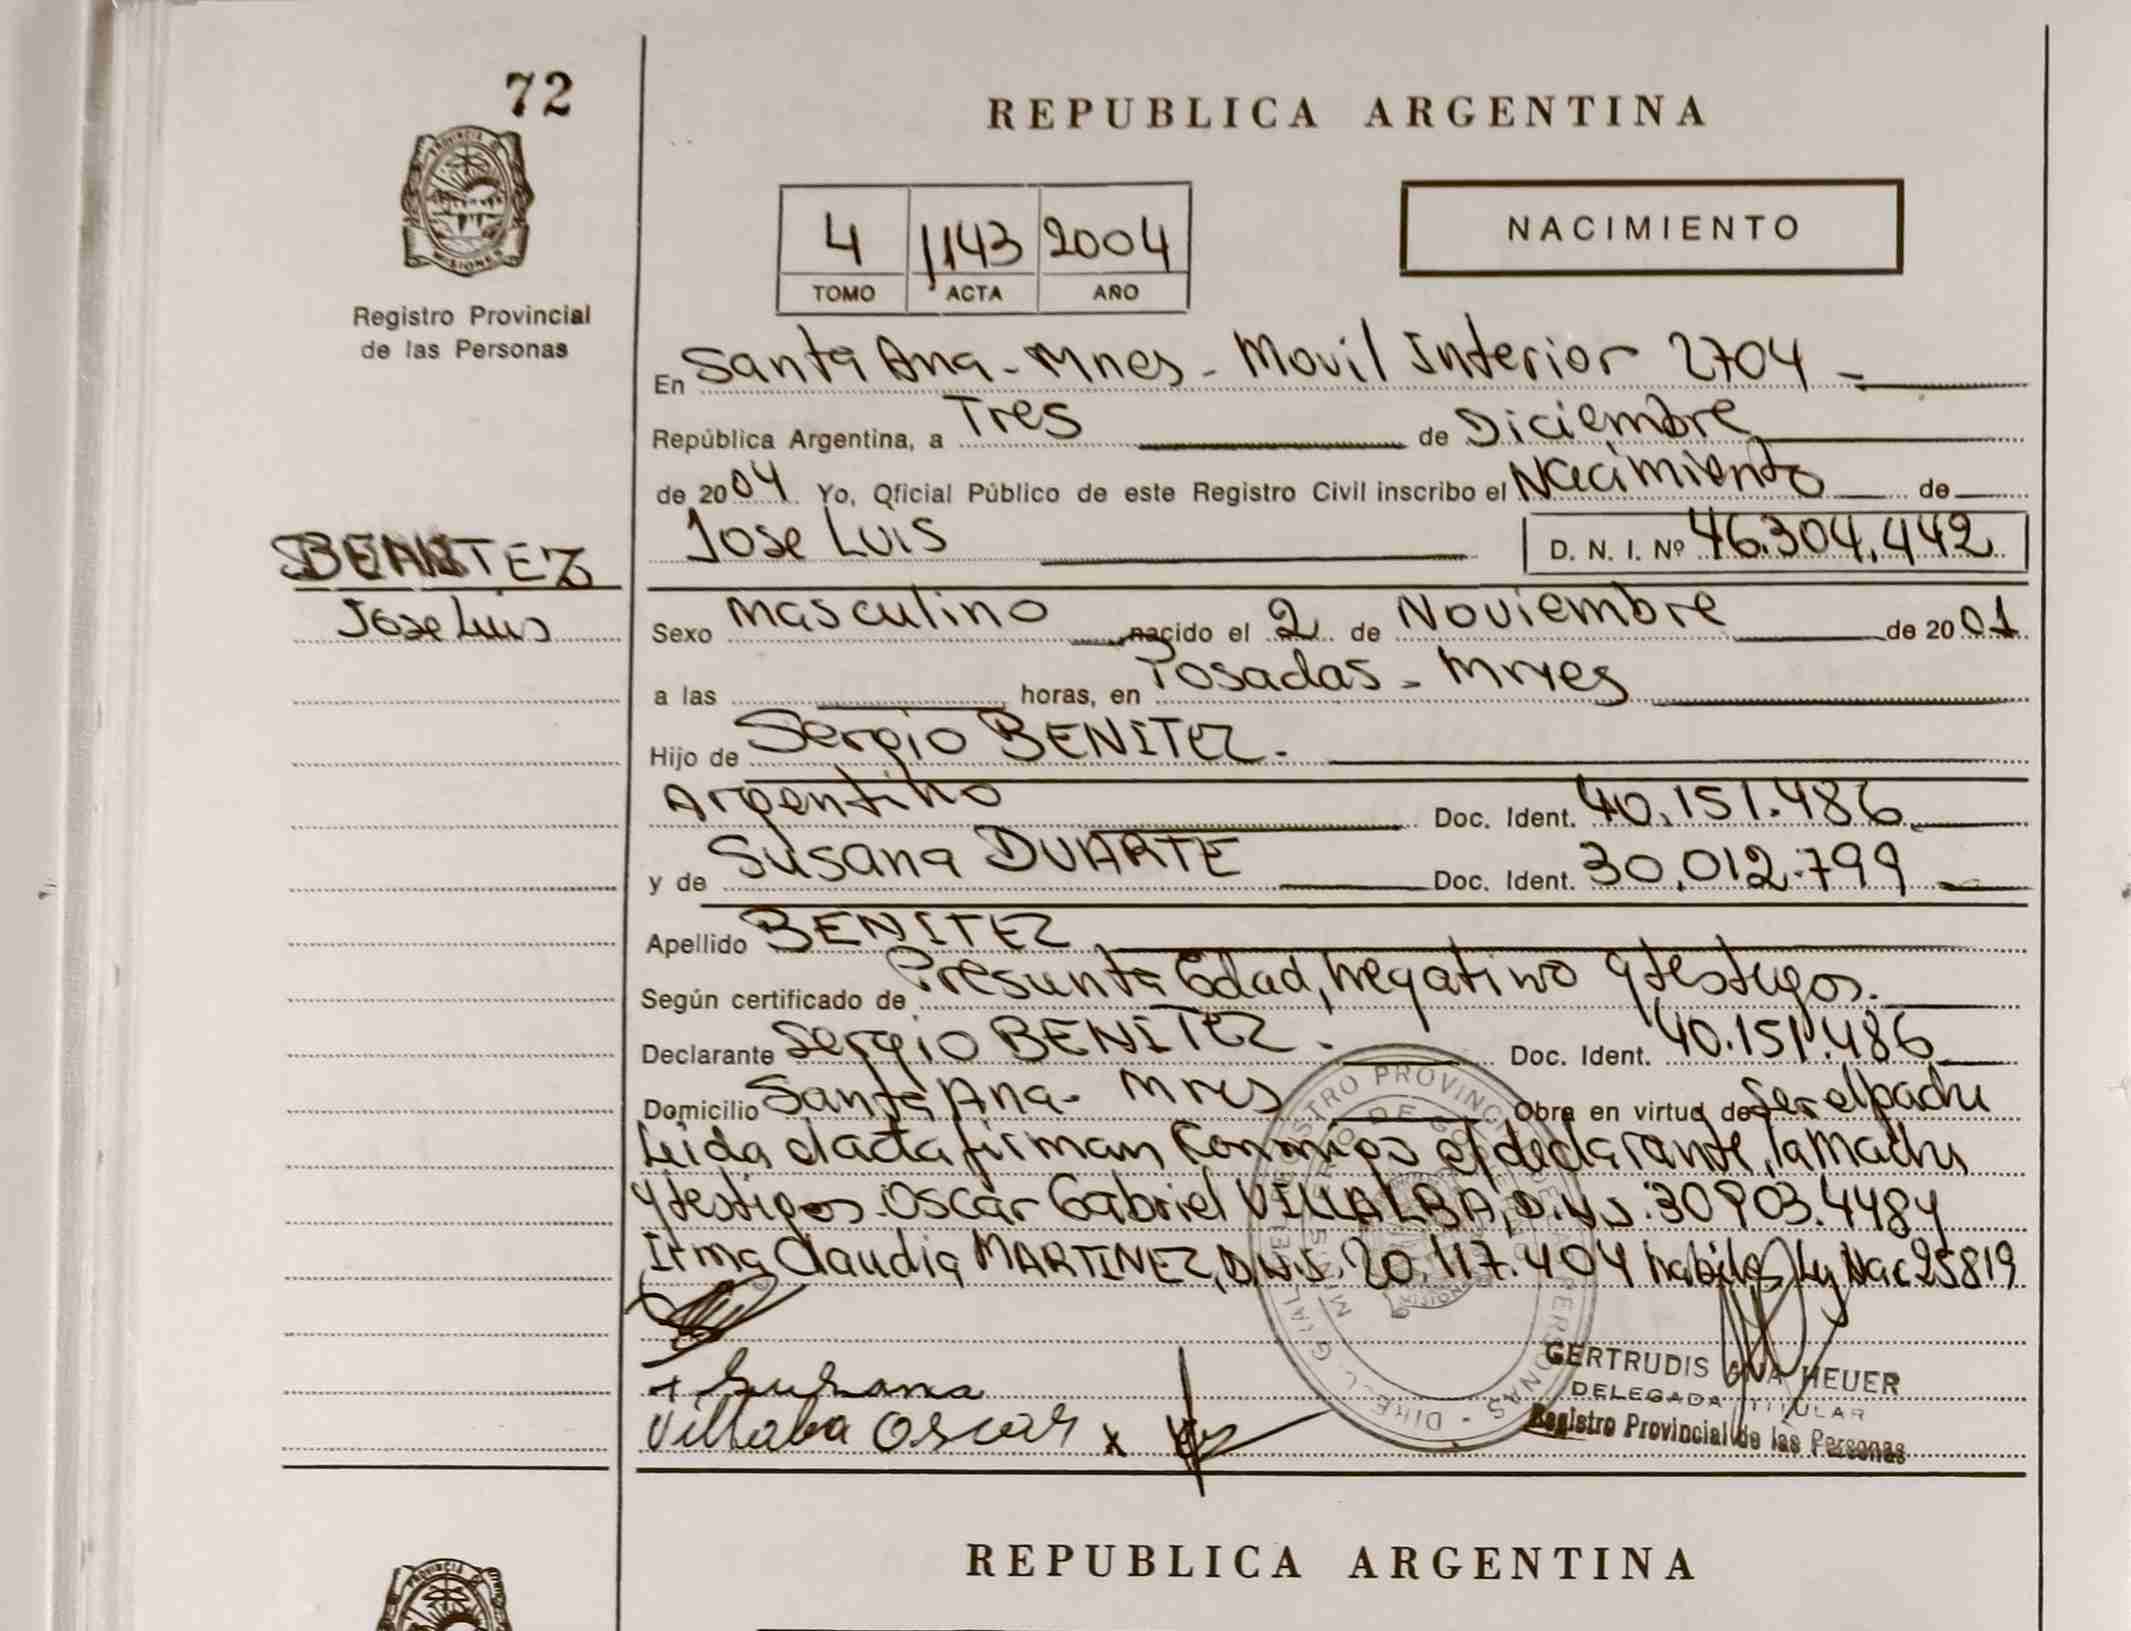 72
REPUBLICA ARGENTINA
PROVINCIA DE
MISIONES
Registro Provincial
de las Personas
4 1143 2004
TOMO ACTA AÑO
NACIMIENTO
En Santa Ana - Mnes - Movil Interior 2704 -
República Argentina, a Tres de Diciembre
de 2004 Yo, Oficial Público de este Registro Civil inscribo el Nacimiento de
Jose Luis D. N. I. Nº 46.304.442
BENITEZ
Jose Luis
Sexo masculino nacido el 2 de Noviembre de 2001
a las horas, en Posadas - Mnes
Hijo de Sergio BENITEZ.
Argentino Doc. Ident. 40.151.486
y de Susana DUARTE Doc. Ident. 30.012.799
Apellido BENITEZ
Según certificado de Presunta Edad, negativo y testigos.
Declarante Sergio BENITEZ. Doc. Ident. 40.151.486
Domicilio Santa Ana - Mnes Obra en virtud de Ser el padre
Leida el acta firman conmigo el declarante, la madre
y testigos. Oscar Gabriel VILLALBA, D.N.I. 30.903.448 y
Irma Claudia MARTINEZ, D.N.I. 20.117.404 habiles Ley Nac 25819
+ Susana
Villalba Oscar x
GERTRUDIS ANA HEUER
DELEGADA TITULAR
Registro Provincial de las Personas
REPUBLICA ARGENTINA
PROVINCIA